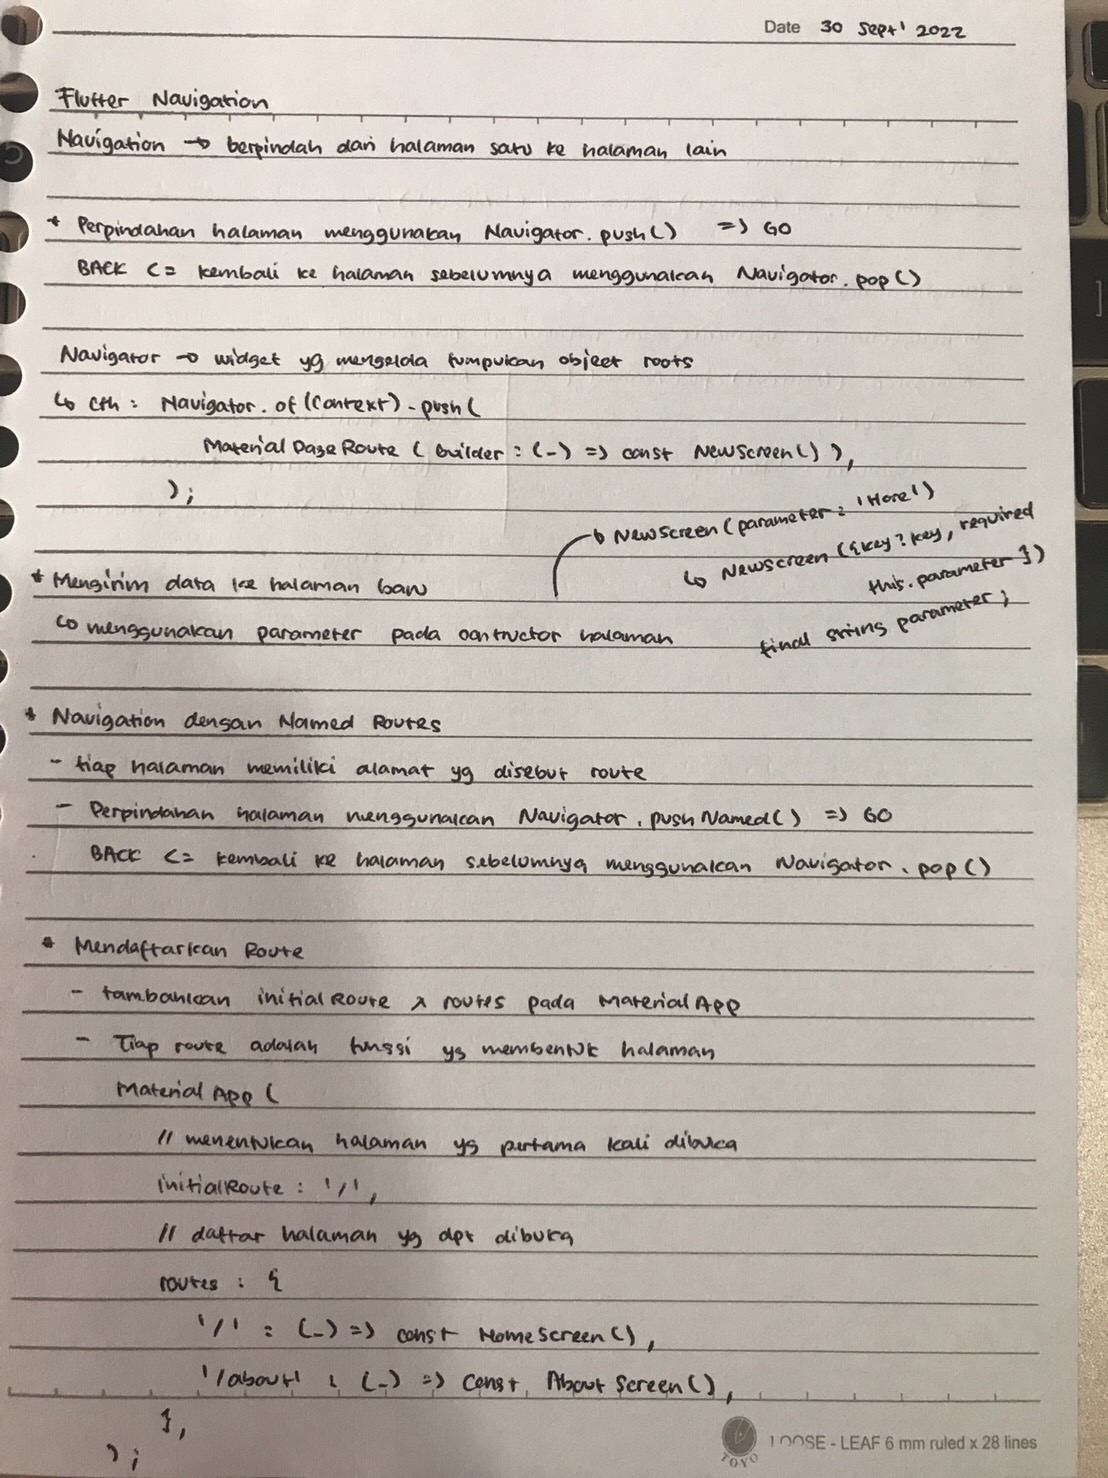 Date 30 Sept' 2022
Flutter Navigation
Navigation → berpindah dari halaman satu ke halaman lain
* Perpindahan halaman menggunakan Navigator.push() => GO
BACK <= kembali ke halaman sebelumnya menggunakan Navigator.pop()
Navigator → widget yg mengelola tumpukan object roots
↳ Cth : Navigator.of(Context).push(
MaterialPageRoute (builder : (_) => const NewScreen() ),
);
↳ NewScreen (parameter : 'Hore')
↳ NewScreen ({key? key, required
this.parameter})
final string parameter;
* Mengirim data ke halaman baru
↳ menggunakan parameter pada contructor halaman
* Navigation dengan Named Routes
- tiap halaman memiliki alamat yg disebut route
- Perpindahan halaman menggunakan Navigator.pushNamed() => GO
BACK <= kembali ke halaman sebelumnya menggunakan Navigator.pop()
* Mendaftarkan Route
- tambahkan initialRoute & routes pada MaterialApp
- Tiap route adalah fungsi yg membentuk halaman
MaterialApp (
// menentukan halaman yg pertama kali dibuka
initialRoute : '/',
// daftar halaman yg dpt dibuka
routes : {
'/' : (_) => const HomeScreen(),
'/about' : (_) => const AboutScreen(),
},
);
TOYO
LOOSE - LEAF 6 mm ruled x 28 lines